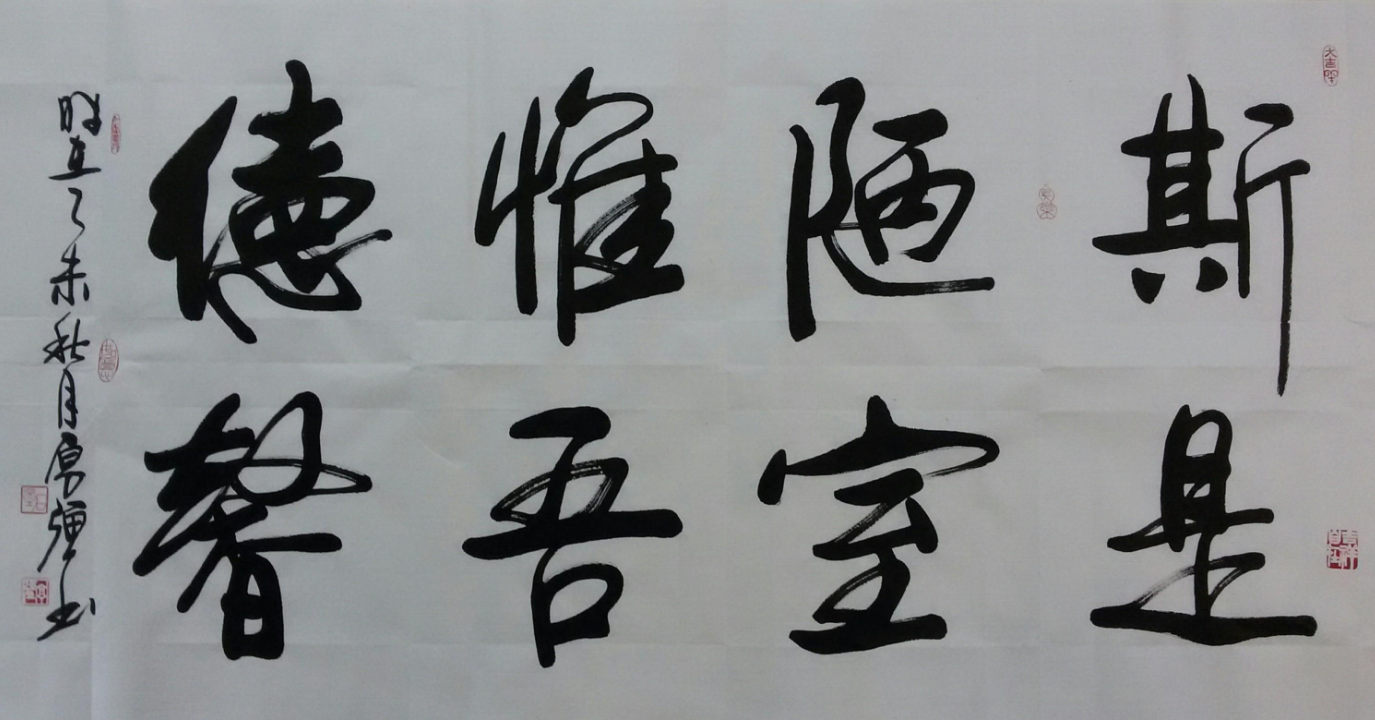 斯是
陋室
惟吾
德馨
时在乙未秋月
书